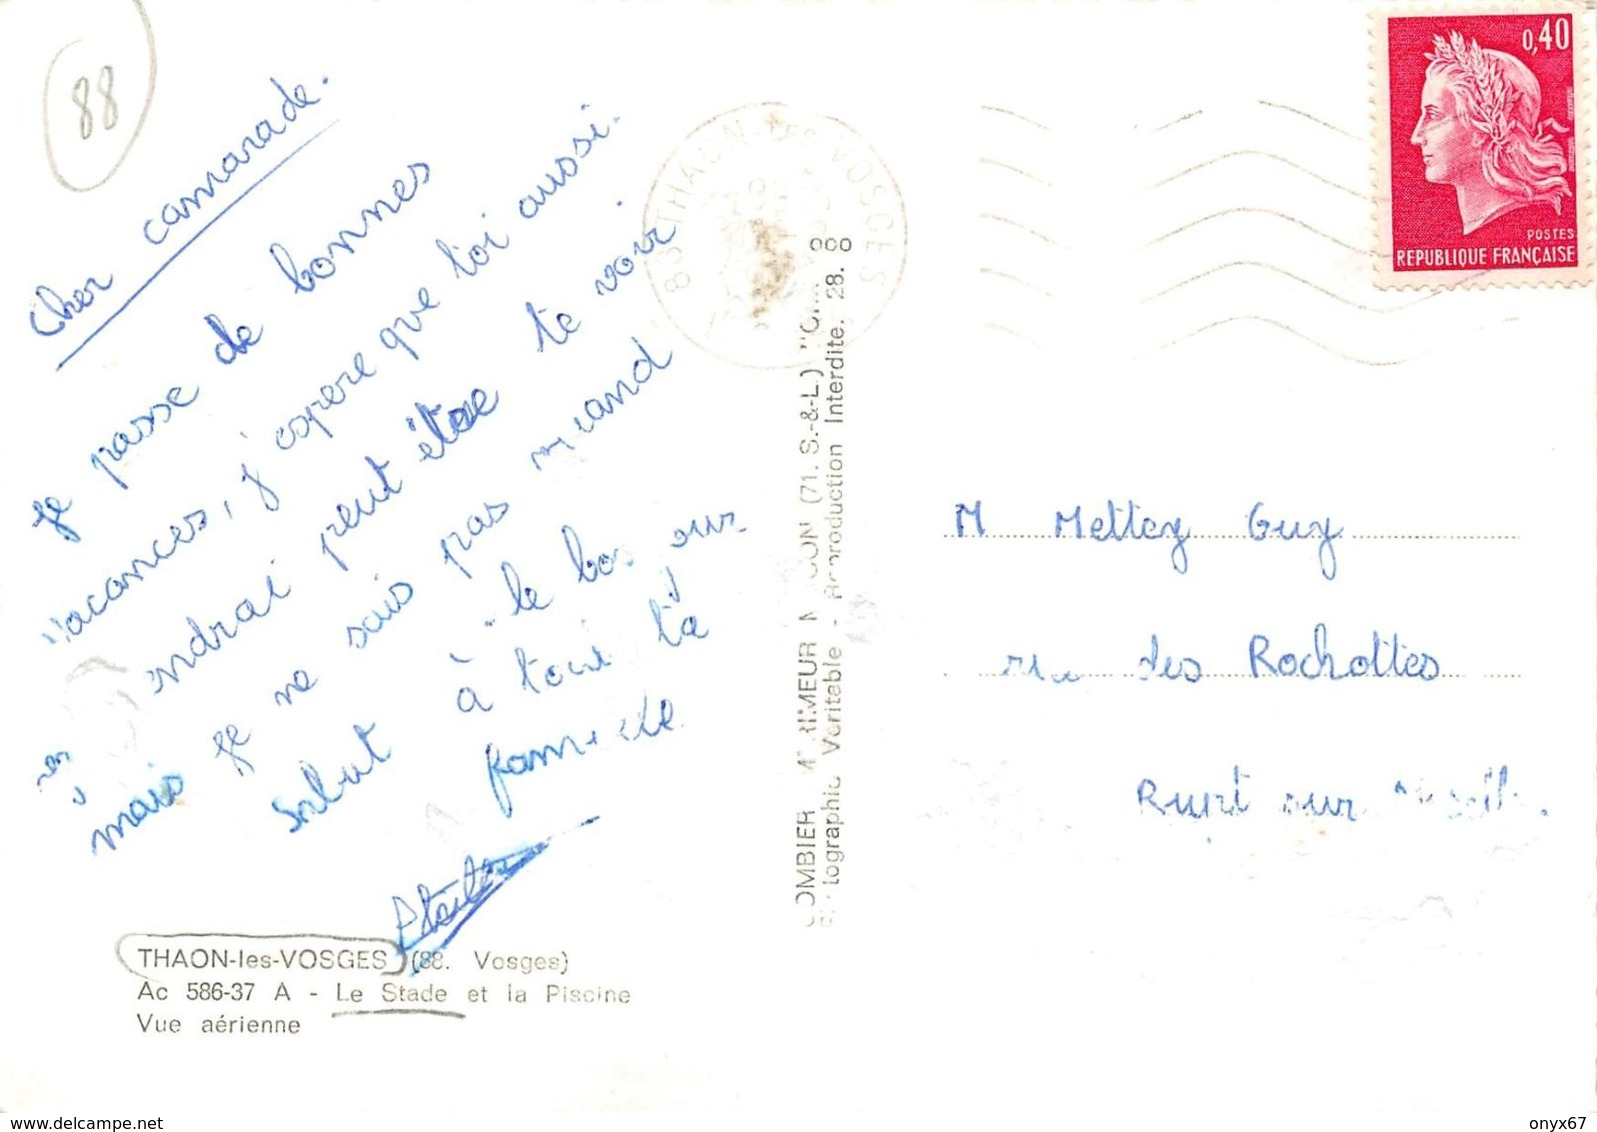 88
Cher camarade.
je passe de bonnes
vacances, j'espere que toi aussi.
viendrai peut être te voir
mais je ne sais pas quand
Salut à toute ta
famille
THAON-les-VOSGES (88. Vosges)
Ac 586-37 A - Le Stade et la Piscine
Vue aérienne
88 THAON-les-VOSGES
COMBIER IMPRIMEUR MACON (71. S.-&-L.) "CIM"
Photographie Véritable - Reproduction Interdite. 28. 88
0,40
POSTES
REPUBLIQUE FRANÇAISE
M Mettey Guy
rue des Rochottes
Rupt sur Moselle.
delcampe.net
onyx67